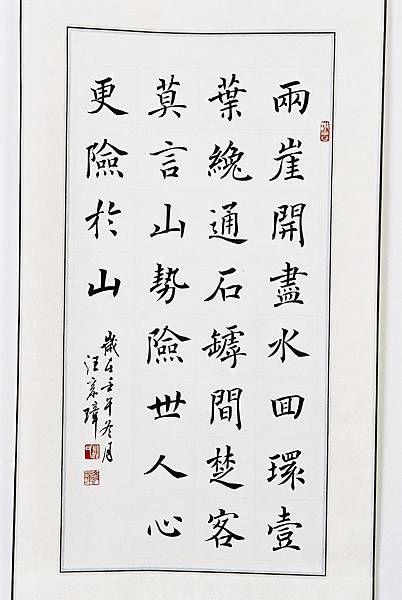 兩崖開盡水回環壹
葉纔通石罅間楚客
莫言山勢險世人心
更險於山
歲在壬午冬月
汪家璋